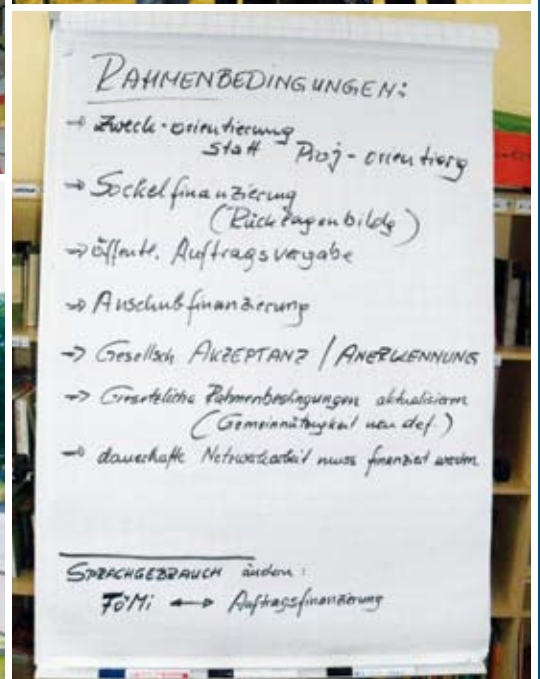 RAHMENBEDINGUNGEN:
→ Zweck-orientierung
statt Proj-orientierg
→ Sockelfinanzierung
(Rücklagenbildg)
→ öffentl. Auftragsvergabe
→ Anschubfinanzierung
→ Gesellsch. AKZEPTANZ / ANERKENNUNG
→ Gesetzliche Rahmenbedingungen aktualisieren
(Gemeinnützigkeit neu def.)
→ dauerhafte Netzwerkarbeit muss finanziert werden
SPRACHGEBRAUCH ändern:
FöMi ↔ Auftragsfinanzierung